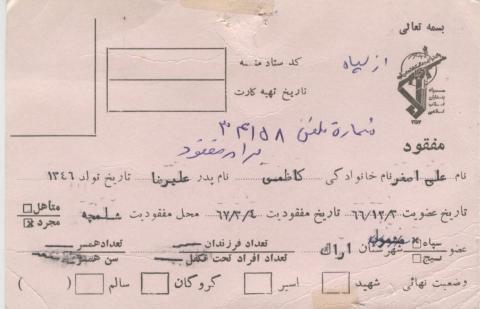 بسمه تعالی
کد ستاد منطقه
از سپاه
تاریخ تهیه کارت
سپاه پاسداران انقلاب اسلامی
شماره تلفن ۳۴۱۵۸
برادر مفقود
مفقود
نام علی اصغر نام خانوادگی کاظمی نام پدر علیرضا تاریخ تولد ۱۳۴۶
تاریخ عضویت ۶۶/۱۲/۳ تاریخ مفقودیت ۶۷/۳/۴ محل مفقودیت شلمچه متاهل مجرد
عضو سپاه بسیج شهرستان اراک تعداد فرزندان تعداد افراد تحت تکفل تعداد همسر سن همسر
وضعیت نهائی شهید اسیر گروگان سالم ( )